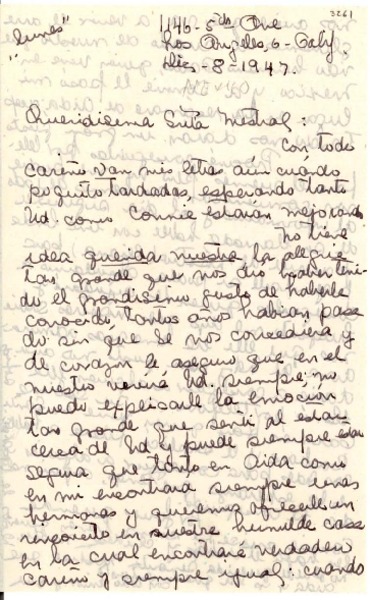 3261
1146 - 5th Ave
"Lunes" Los Angeles, 6 - Calif
Dic - 8 - 1947.
Queridisima Srta Mistral:
Con todo
cariño van mis letras aún cuando
poquito tardadas, esperando tanto
Ud. como Connie estarán mejorando
No tiene
idea querida nuestra la alegría
tan grande que nos dio haber teni-
do el grandisimo gusto de haberle
conocido, tantos años habian pasa
do sin que se nos concediera y
de corazon le aseguro que en el
nuestro vivirá Ud. siempre; no
puedo explicarle la emoción
tan grande que senti al estar
cerca de Ud y puede siempre estar
segura que tanto en Aida como
en mi encontrara siempre unas
hermanas y queremos ofrecerle un
rinconcito en nuestra humilde casa
en la cual encontrará verdadero
cariño y siempre igual; cuando